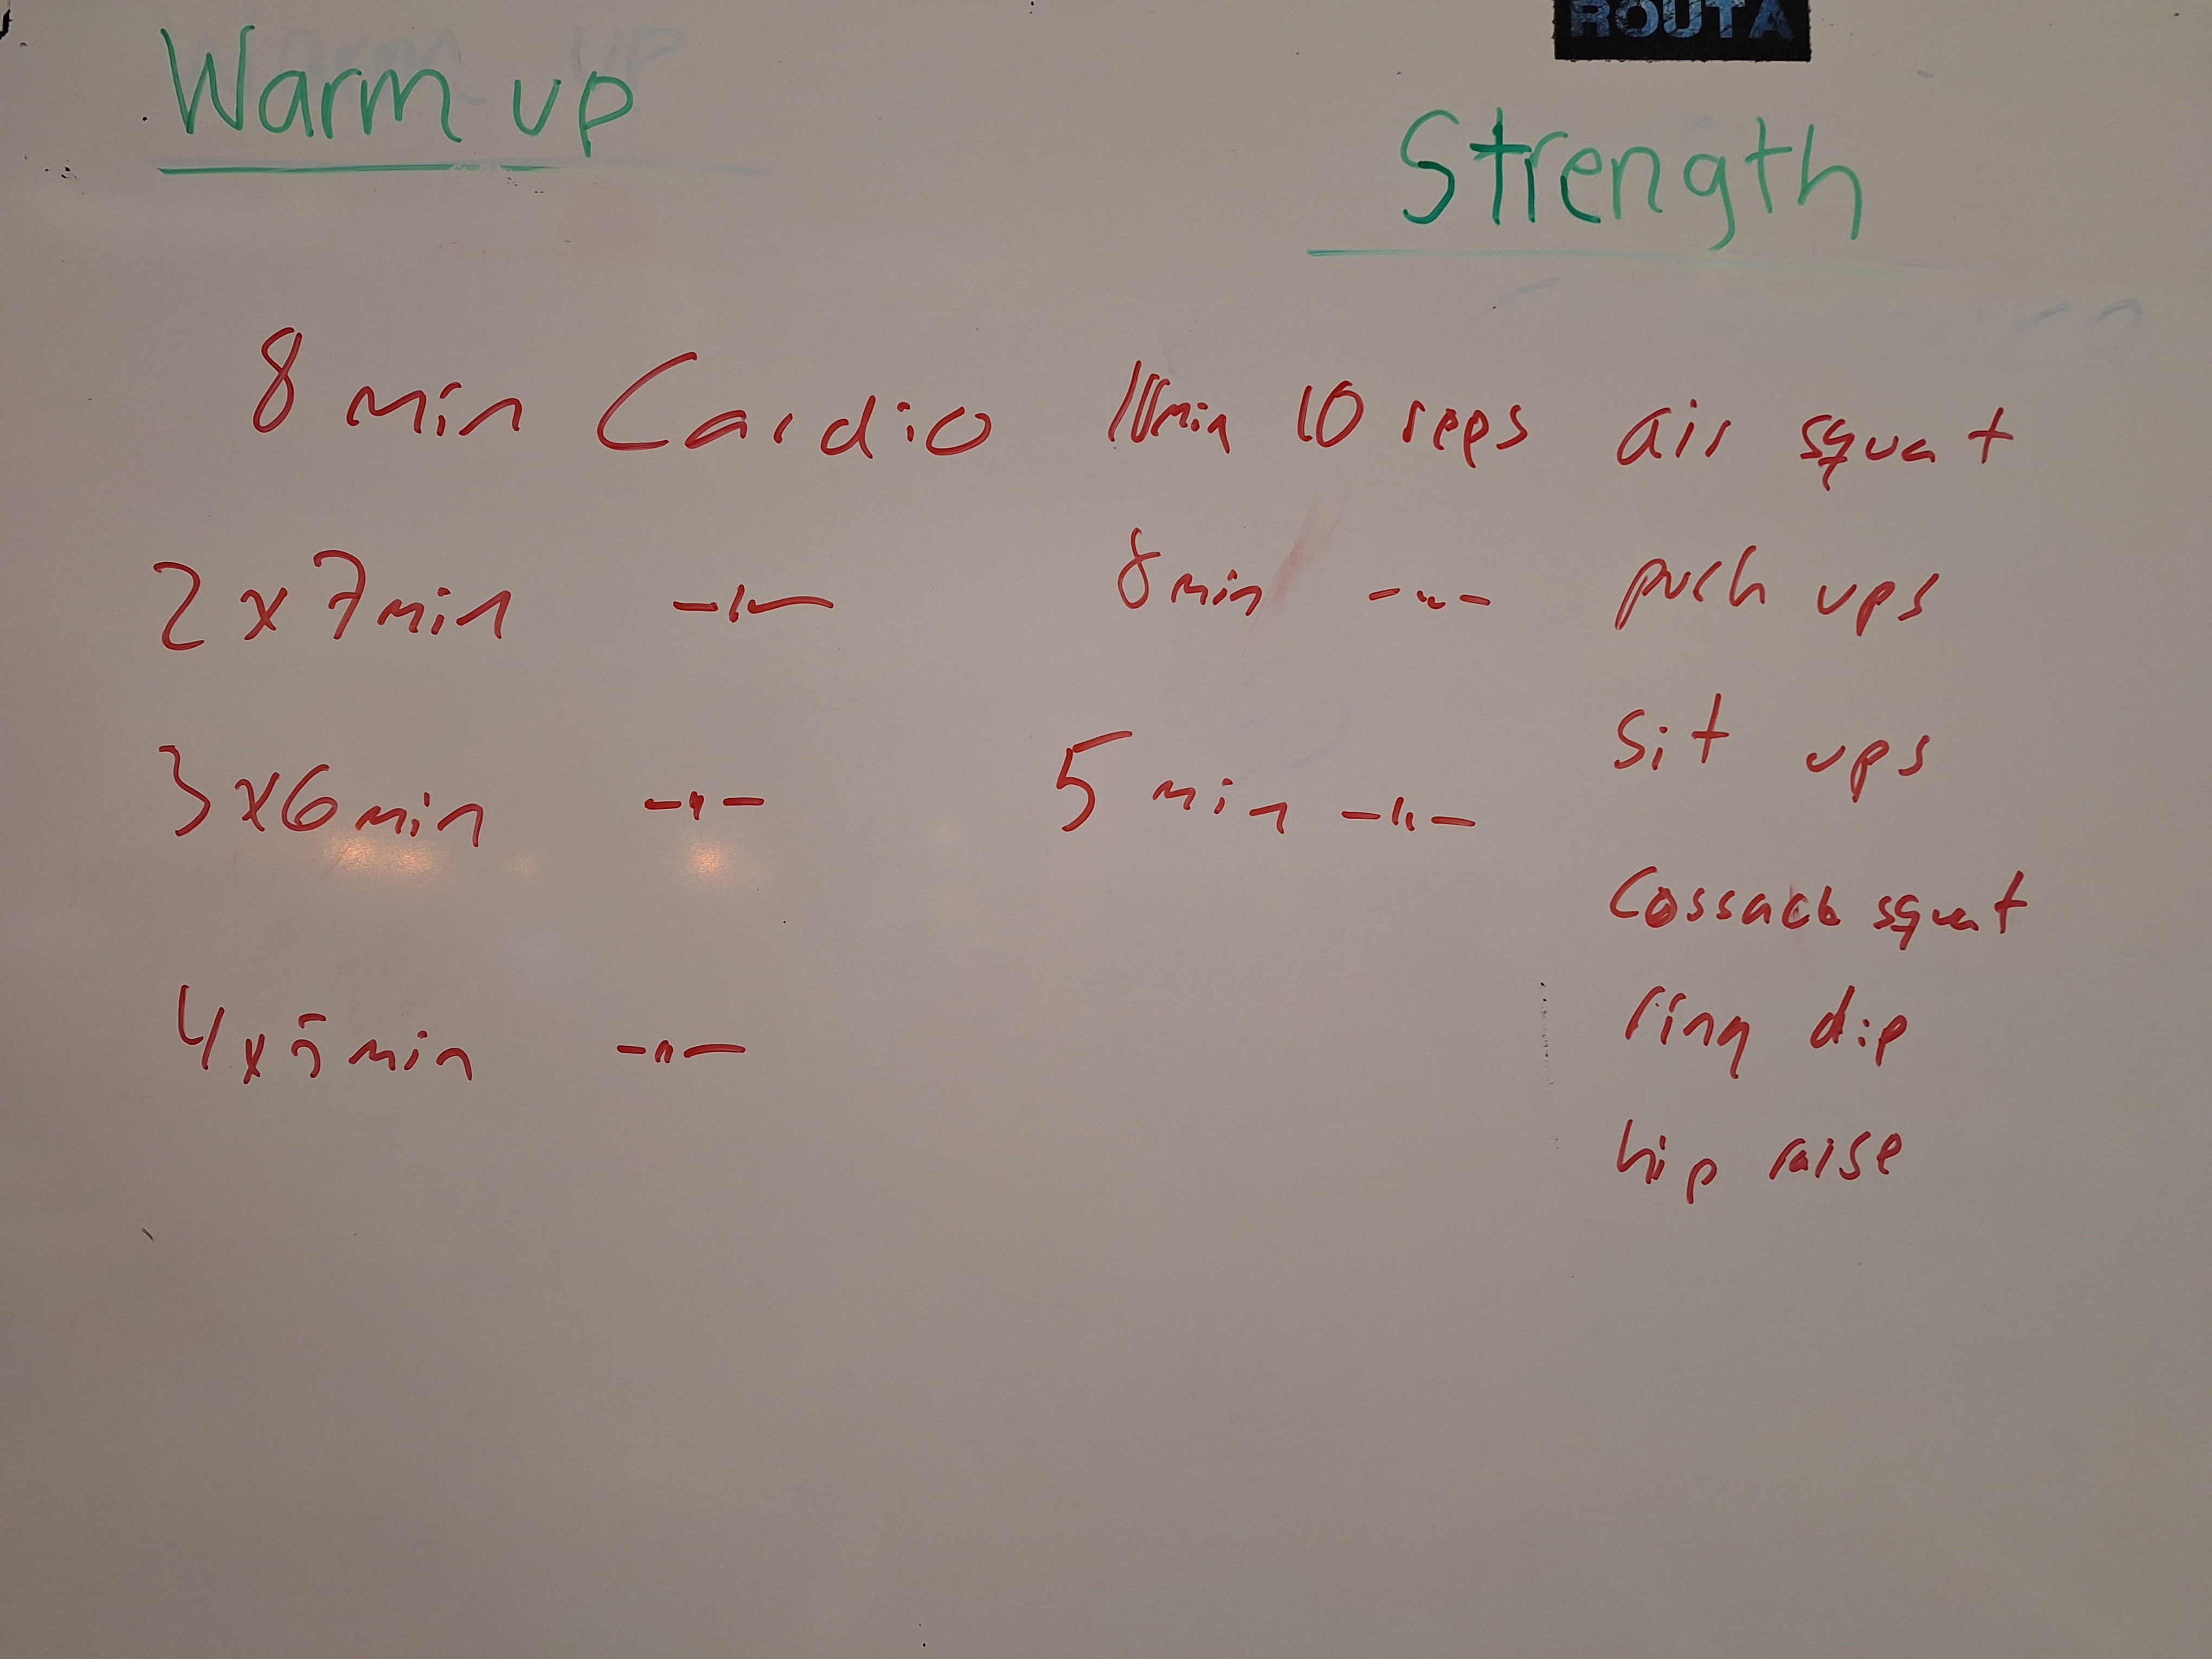 ROUTA
Warm up
Strength
8 min Cardio
2 x 7min -"-
3 x 6min -"-
4 x 5min -"-
min 10 reps air squat
8 min -"- push ups
sit ups
5 min -"-
Cossack squat
ring dip
hip raise